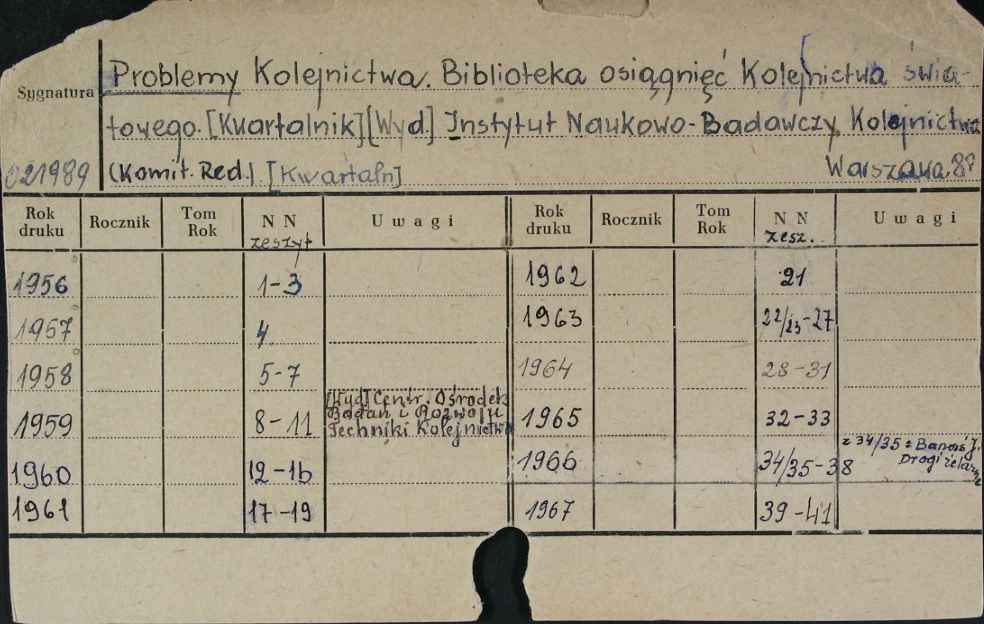 Problemy Kolejnictwa. Biblioteka osiągnięć Kolejnictwa świa-
Sygnatura
towego. [Kwartalnik] [Wyd.] Instytut Naukowo-Badawczy Kolejnictwa
021989 (Komit. Red.) [Kwartaln] Warszawa, 8°
Rok druku Rocznik Tom Rok N N zeszyt Uwagi Rok druku Rocznik Tom Rok N N zesz. Uwagi
1956 1-3 1962 21
1957 4. 1963 22/23-27
1958 5-7 1964 28-31
1959 8-11 [Wyd] Centr. Ośrodek Badań i Rozwoju Techniki Kolejnictwa 1965 32-33
1960 12-16 1966 34/35-38 z 34/35: Banaś J. Drogi żelazne
1961 17-19 1967 39-41